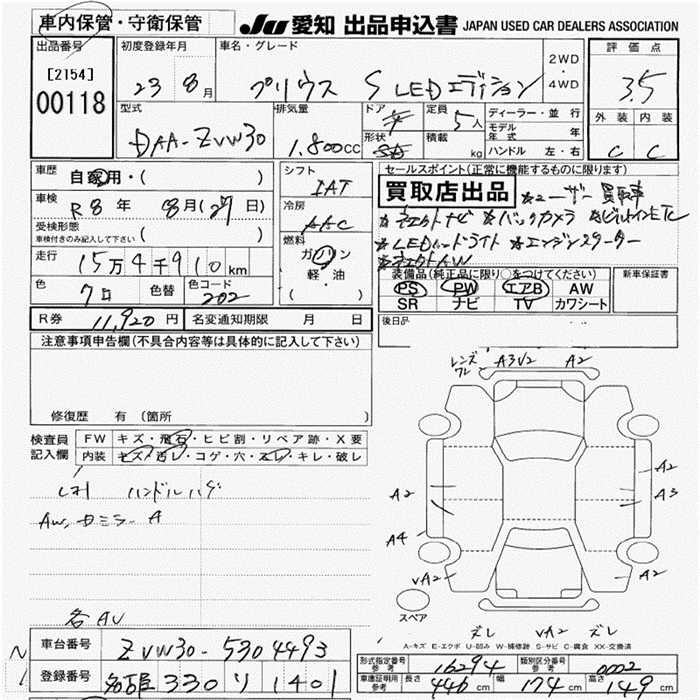 車内保管・守衛保管
JU 愛知 出品申込書 JAPAN USED CAR DEALERS ASSOCIATION
出品番号
[2154]
00118
初度登録年月
23 8月
車名・グレード
プリウス S LEDエディション
2WD
・
4WD
評価点
3.5
外装 内装
C C
型式
DAA-ZVW30
排気量
1.800cc
ドア
5
形状
定員
5人
積載
kg
ディーラー・並行
モデル年式 年
ハンドル 左・右
車歴
自家用・( )
車検
R8年 8月(27日)
受検形態
車検付きのみ記入して下さい ( )
走行
15万4千910km
色
7
色替
色コード
202
シフト
IAT
冷房
AAC
燃料
ガソリン
軽・油
( )
セールスポイント(正常に機能するものに限ります)
買取店出品
☆ユーザー買取車
☆ナビ ☆バックカメラ ☆ビルトインETC
☆LEDヘッドライト ☆エンジンスターター
AW
装備品(純正品に限り○をつけてください)
PS PW エアB AW
SR ナビ TV カワシート
新車保証書
後日品
R券 11,920円
名変通知期限 月 日
注意事項申告欄(不具合内容等は具体的に記入して下さい)
修復歴 有 (箇所
検査員
記入欄
FW キズ・飛石・ヒビ割・リペア跡・X要
内装 キズ・汚レ・コゲ・穴・スレ・キレ・破レ
ハンドルハゲ
AW, カミラー A
各AU
レンズ
ワレ
A3V2 A2
A2
A3
A2
A2
A4
VA2
スペア
ズレ VA2 ズレ
A-キズ E-エクボ U-凹み W-補修跡 S-サビ C-腐食 XX-交換済
車台番号 ZVW30-5304493
登録番号 名古屋 330 リ 1401
形式指定番号
参考
16294
類別区分番号
参考
0002
車庫証明用
参考
長さ 446cm 幅 174cm 高さ 149cm